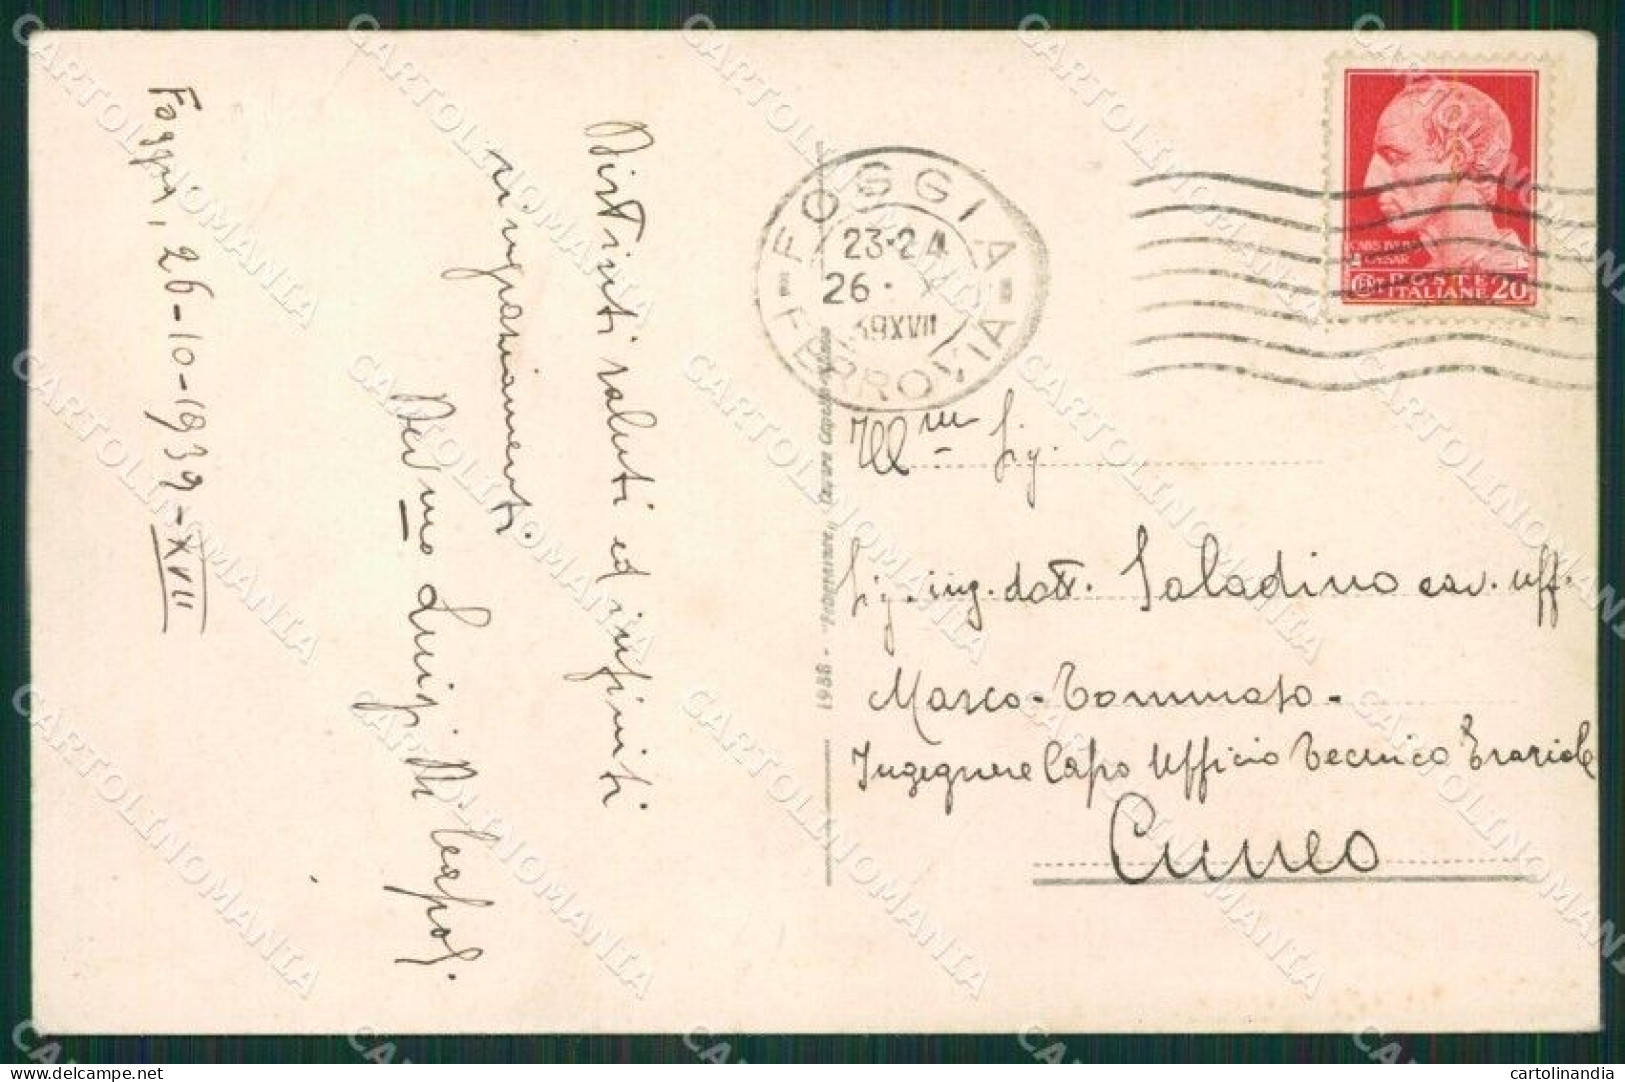 Foggia, 26-10-1939-XVII
Distinti saluti ed infiniti
ringraziamenti
Dev mo Luigi Di
FOGGIA
23-24
26· X
39XVII
FERROVIA
CAIUS IVLIVS
CAESAR
POSTE
ITALIANE 20
Ill mo Sig.
Sig. ing. dott. Saladino cav. uff.
Marco-Tommaso-
Ingegnere Capo Ufficio Tecnico Erariale
Cuneo
1938 -
CARTOLINOMANIA
delcampe.net
cartolinandia